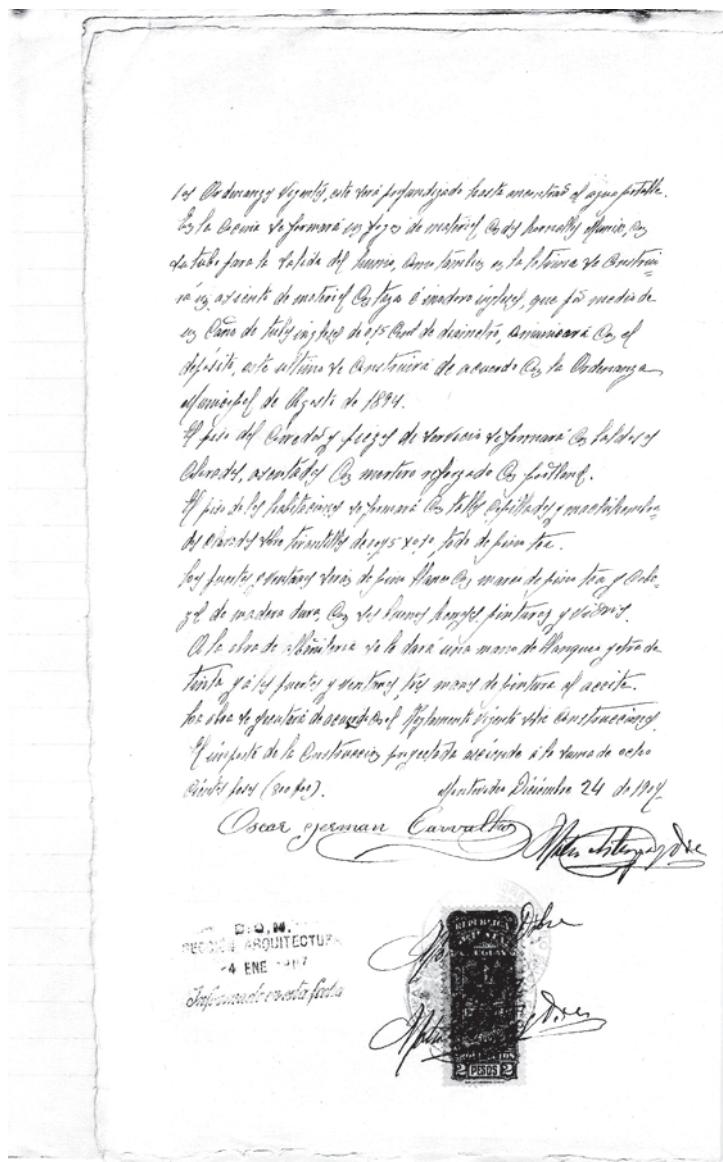 las Ordenanzas Vigentes, este será profundizado hasta encontrar el agua potable.
En la Cocina se formará un fogon de material con dos hornallas        , con
su tubo para la salida del humo, como tambien en la letrina se construi-
rá un asiento de material con taza é inodoro ingleses, que por medio de
un Caño de tubos ingleses de 0,15 Cent de diametro, comunicará con el
depósito, este ultimo se construirá de acuerdo con la Ordenanza
Municipal de Agosto de 1894.
El piso del Corredor y piezas de servicio se formará con baldosas
        , asentadas con mortero reforzado con portland.
El piso de las habitaciones se formará con tablas cepilladas y machihembra-
das clavadas sobre tirantillos de         todo de pino tea.
Las puertas y ventanas serán de pino blanco con marcos de pino tea y
        de madera dura, con sus buenos herrajes, pinturas y vidrios.
A la obra de Albañileria se le dará una mano de blanqueo y otra de
tinta y á las puertas y ventanas, tres manos de pintura al aceite.
La obra se ejecutará de acuerdo con el Reglamento Vigente sobre Construcciones.
El importe de la Construccion proyectada asciende á la suma de ocho
cientos pesos (800 pesos). Montevideo Diciembre 24 de
Oscar German Carvalho
D.O.M.
SECCIÓN ARQUITECTURA
-4 ENE
Informado en esta fecha
REPUBLICA
URUGUAY
2 PESOS 2